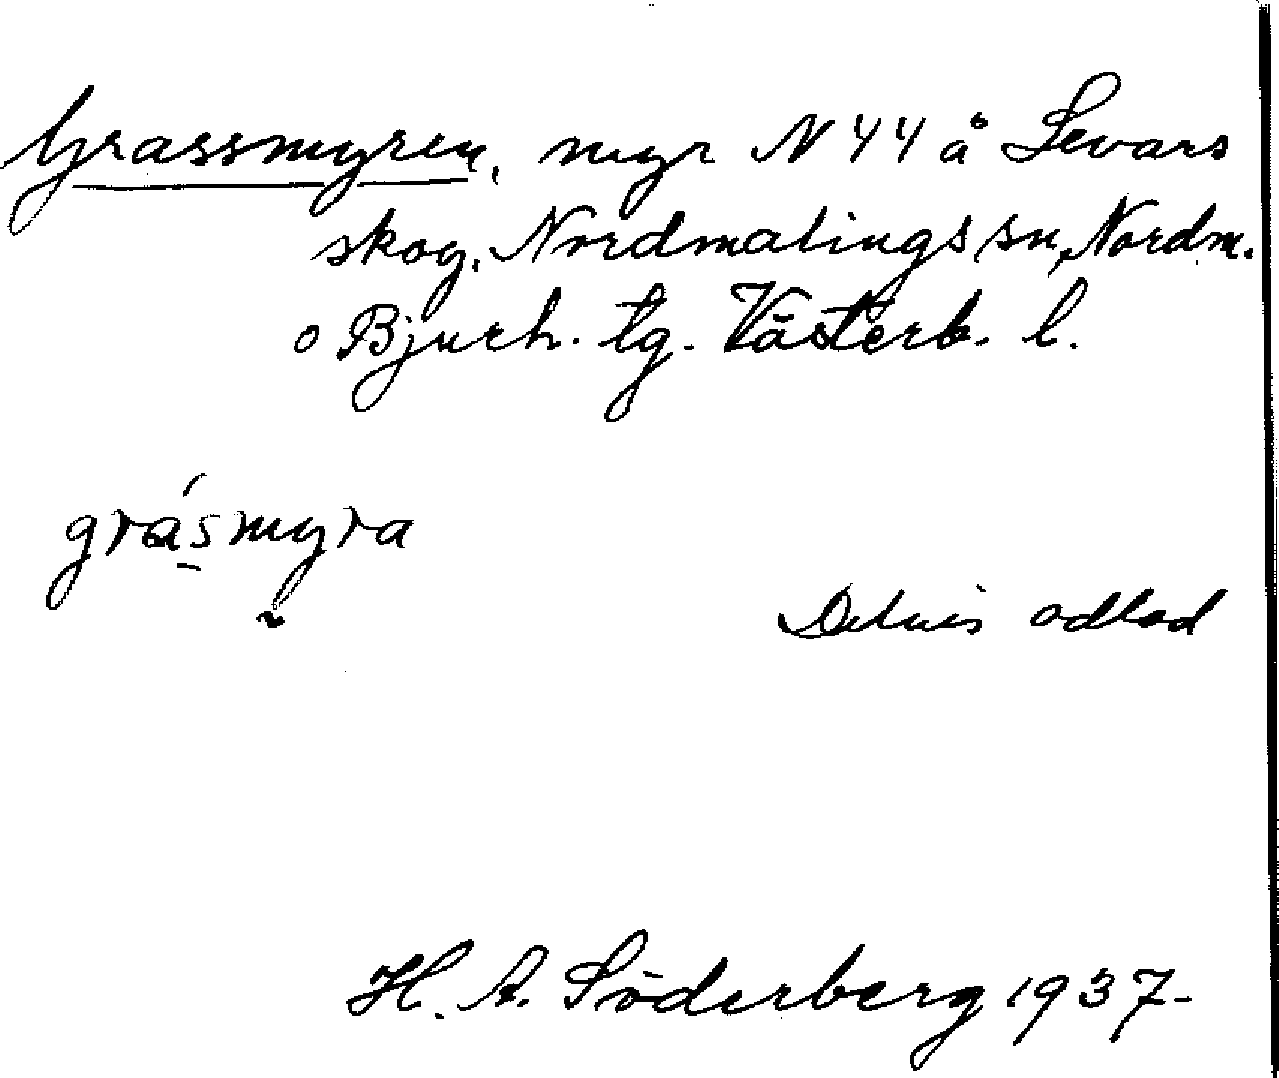 Grassmyren, myr N 44 å Levars
skog, Nordmalings sn, Nordm.
o Bjurh. tg. Västerb. l.
grásmyra
Delvis odlad
H. A. Söderberg 1937-